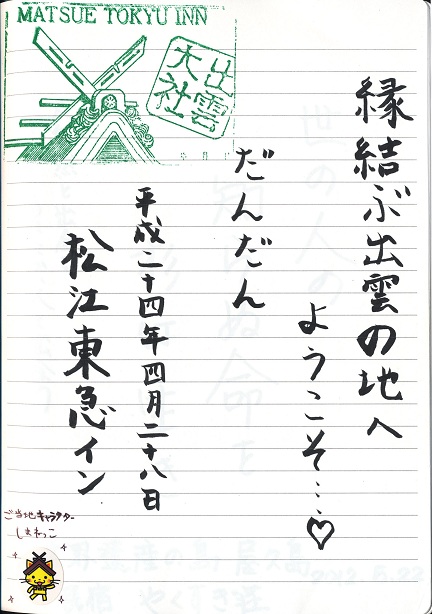 MATSUE TOKYU INN
出雲
大社
縁結ぶ出雲の地へ
ようこそ…♡
だんだん
平成二十四年四月二十八日
松江東急イン
ご当地キャラクター
しまねっこ